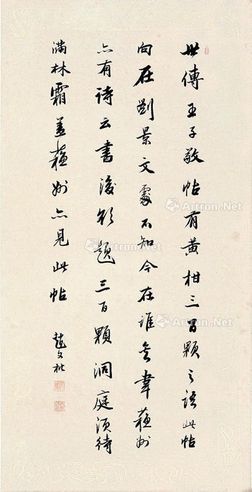 世傳王子敬帖有黃柑三百顆之語此帖
向在劉景文處不知今在誰韋蘇州
亦有詩云書後欲題三百顆洞庭須待
滿林霜蓋蘇州亦見此帖
趙文
Artron.Net